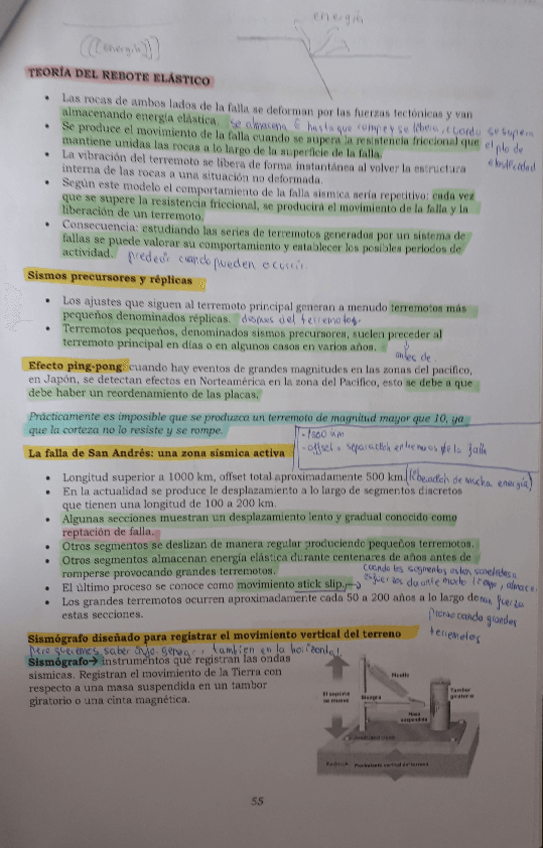 energía
(((energía)))
TEORÍA DEL REBOTE ELÁSTICO
• Las rocas de ambos lados de la falla se deforman por las fuerzas tectónicas y van
almacenando energía elástica. se almacena E hasta que rompe y se libera, cuando se supera
• Se produce el movimiento de la falla cuando se supera la resistencia friccional que
el pto de
mantiene unidas las rocas a lo largo de la superficie de la falla.
elasticidad
• La vibración del terremoto se libera de forma instantánea al volver la estructura
interna de las rocas a una situación no deformada.
• Según este modelo el comportamiento de la falla sísmica sería repetitivo: cada vez
que se supere la resistencia friccional, se producirá el movimiento de la falla y la
liberación de un terremoto.
• Consecuencia: estudiando las series de terremotos generados por un sistema de
fallas se puede valorar su comportamiento y establecer los posibles periodos de
actividad. predecir cuando pueden ocurrir.
Sismos precursores y réplicas
• Los ajustes que siguen al terremoto principal generan a menudo terremotos más
pequeños denominados réplicas. después del terremoto.
• Terremotos pequeños, denominados sismos precursores, suelen preceder al
terremoto principal en días o en algunos casos en varios años.
antes de.
Efecto ping-pong: cuando hay eventos de grandes magnitudes en las zonas del pacífico,
en Japón, se detectan efectos en Norteamérica en la zona del Pacífico, esto se debe a que
debe haber un reordenamiento de las placas.
Prácticamente es imposible que se produzca un terremoto de magnitud mayor que 10, ya
que la corteza no lo resiste y se rompe.
- 1000 km
- offset = separación entre muros de la falla
La falla de San Andrés: una zona sísmica activa
• Longitud superior a 1000 km, offset total aproximadamente 500 km. (liberación de mucha energía)
• En la actualidad se produce le desplazamiento a lo largo de segmentos discretos
que tienen una longitud de 100 a 200 km.
• Algunas secciones muestran un desplazamiento lento y gradual conocido como
reptación de falla.
• Otros segmentos se deslizan de manera regular produciendo pequeños terremotos.
• Otros segmentos almacenan energía elástica durante centenares de años antes de
romperse provocando grandes terremotos.
cuando los segmentos están sometidos a
• El último proceso se conoce como movimiento stick slip. → esfuerzos durante mucho tiempo, almace.
• Los grandes terremotos ocurren aproximadamente cada 50 a 200 años a lo largo de
estas secciones.
provocando grandes
terremotos
Sismógrafo diseñado para registrar el movimiento vertical del terreno
Pero si quieres saber algo general, también en la horizontal
Sismógrafo→ instrumentos que registran las ondas
sísmicas. Registran el movimiento de la Tierra con
respecto a una masa suspendida en un tambor
giratorio o una cinta magnética.
Muelle
El soporte
se mueve
Bisagra
Tambor
giratorio
Masa
suspendida
55